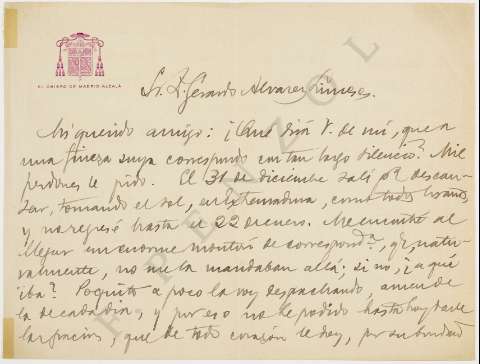 EL OBISPO DE MADRID-ALCALÁ
Sr. D. Gerardo Alvarez Limeses.
Mi querido amigo: ¡Qué dirá V. de mí, que a
una fineza suya correspondo con tan largo silencio? Mil
perdones le pido. El 31 de diciembre salí pª descan-
sar, tomando el sol, en Extremadura, como todos los años,
y no regresé hasta el 22 de enero. Me encontré al
llegar un enorme montón de correspondª, qe, natu-
ralmente, no me la mandaban allá; si no, ¿a qué
iba? Poquito a poco la voy despachando, amén de
la de cada día, y por eso no he podido hasta hoy darle
las gracias, que de todo corazón le doy, por su bondad
PENZOL